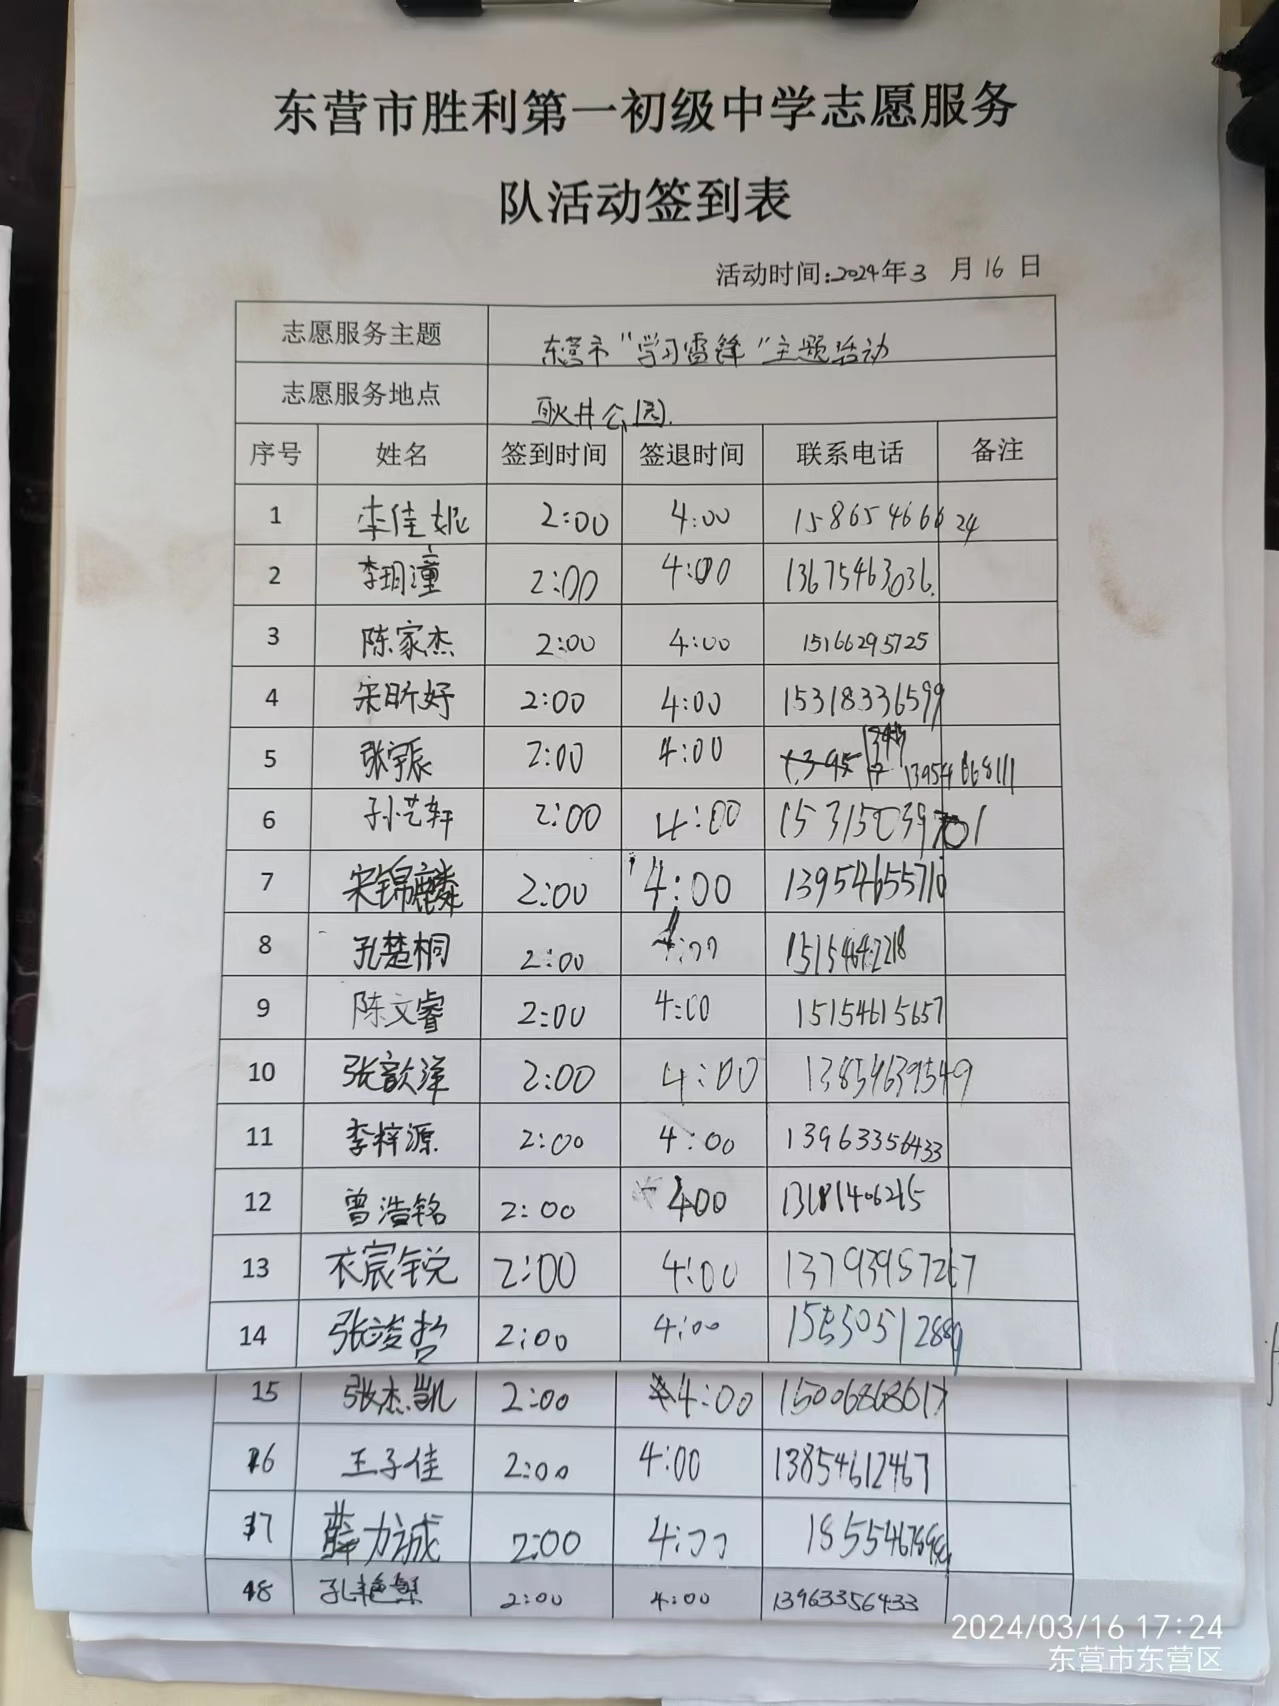 东营市胜利第一初级中学志愿服务
队活动签到表
活动时间:2024年3 月16 日
志愿服务主题 东营市“学习雷锋”主题活动
志愿服务地点 耿井公园.
序号 姓名 签到时间 签退时间 联系电话 备注
1 李佳妮 2:00 4:00 15865466624
2 李玥潼 2:00 4:00 13675463036.
3 陈家杰 2:00 4:00 15166295725
4 宋昕好 2:00 4:00 15318336599
5 张宇辰 2:00 4:00 13954668111
6 孙艺轩 2:00 4:00
7 宋锦麟 2:00 4:00 13954655710
8 孔楚桐 2:00 4:00 15154642218
9 陈文睿 2:00 4:00 15154615657
10 张歆泽 2:00 4:00 13854639549
11 李梓源 2:00 4:00 13963356433
12 曾浩铭 2:00 4:00 13181406215
13 衣宸锐 2:00 4:00 13793957267
14 张竣哲 2:00 4:00
15 张杰凯 2:00 4:00 15006868617
16 王子佳 2:00 4:00 13854612467
17 薛力诚 2:00 4:00
18 孔艳 2:00 4:00 13963356433
2024/03/16 17:24
东营市东营区